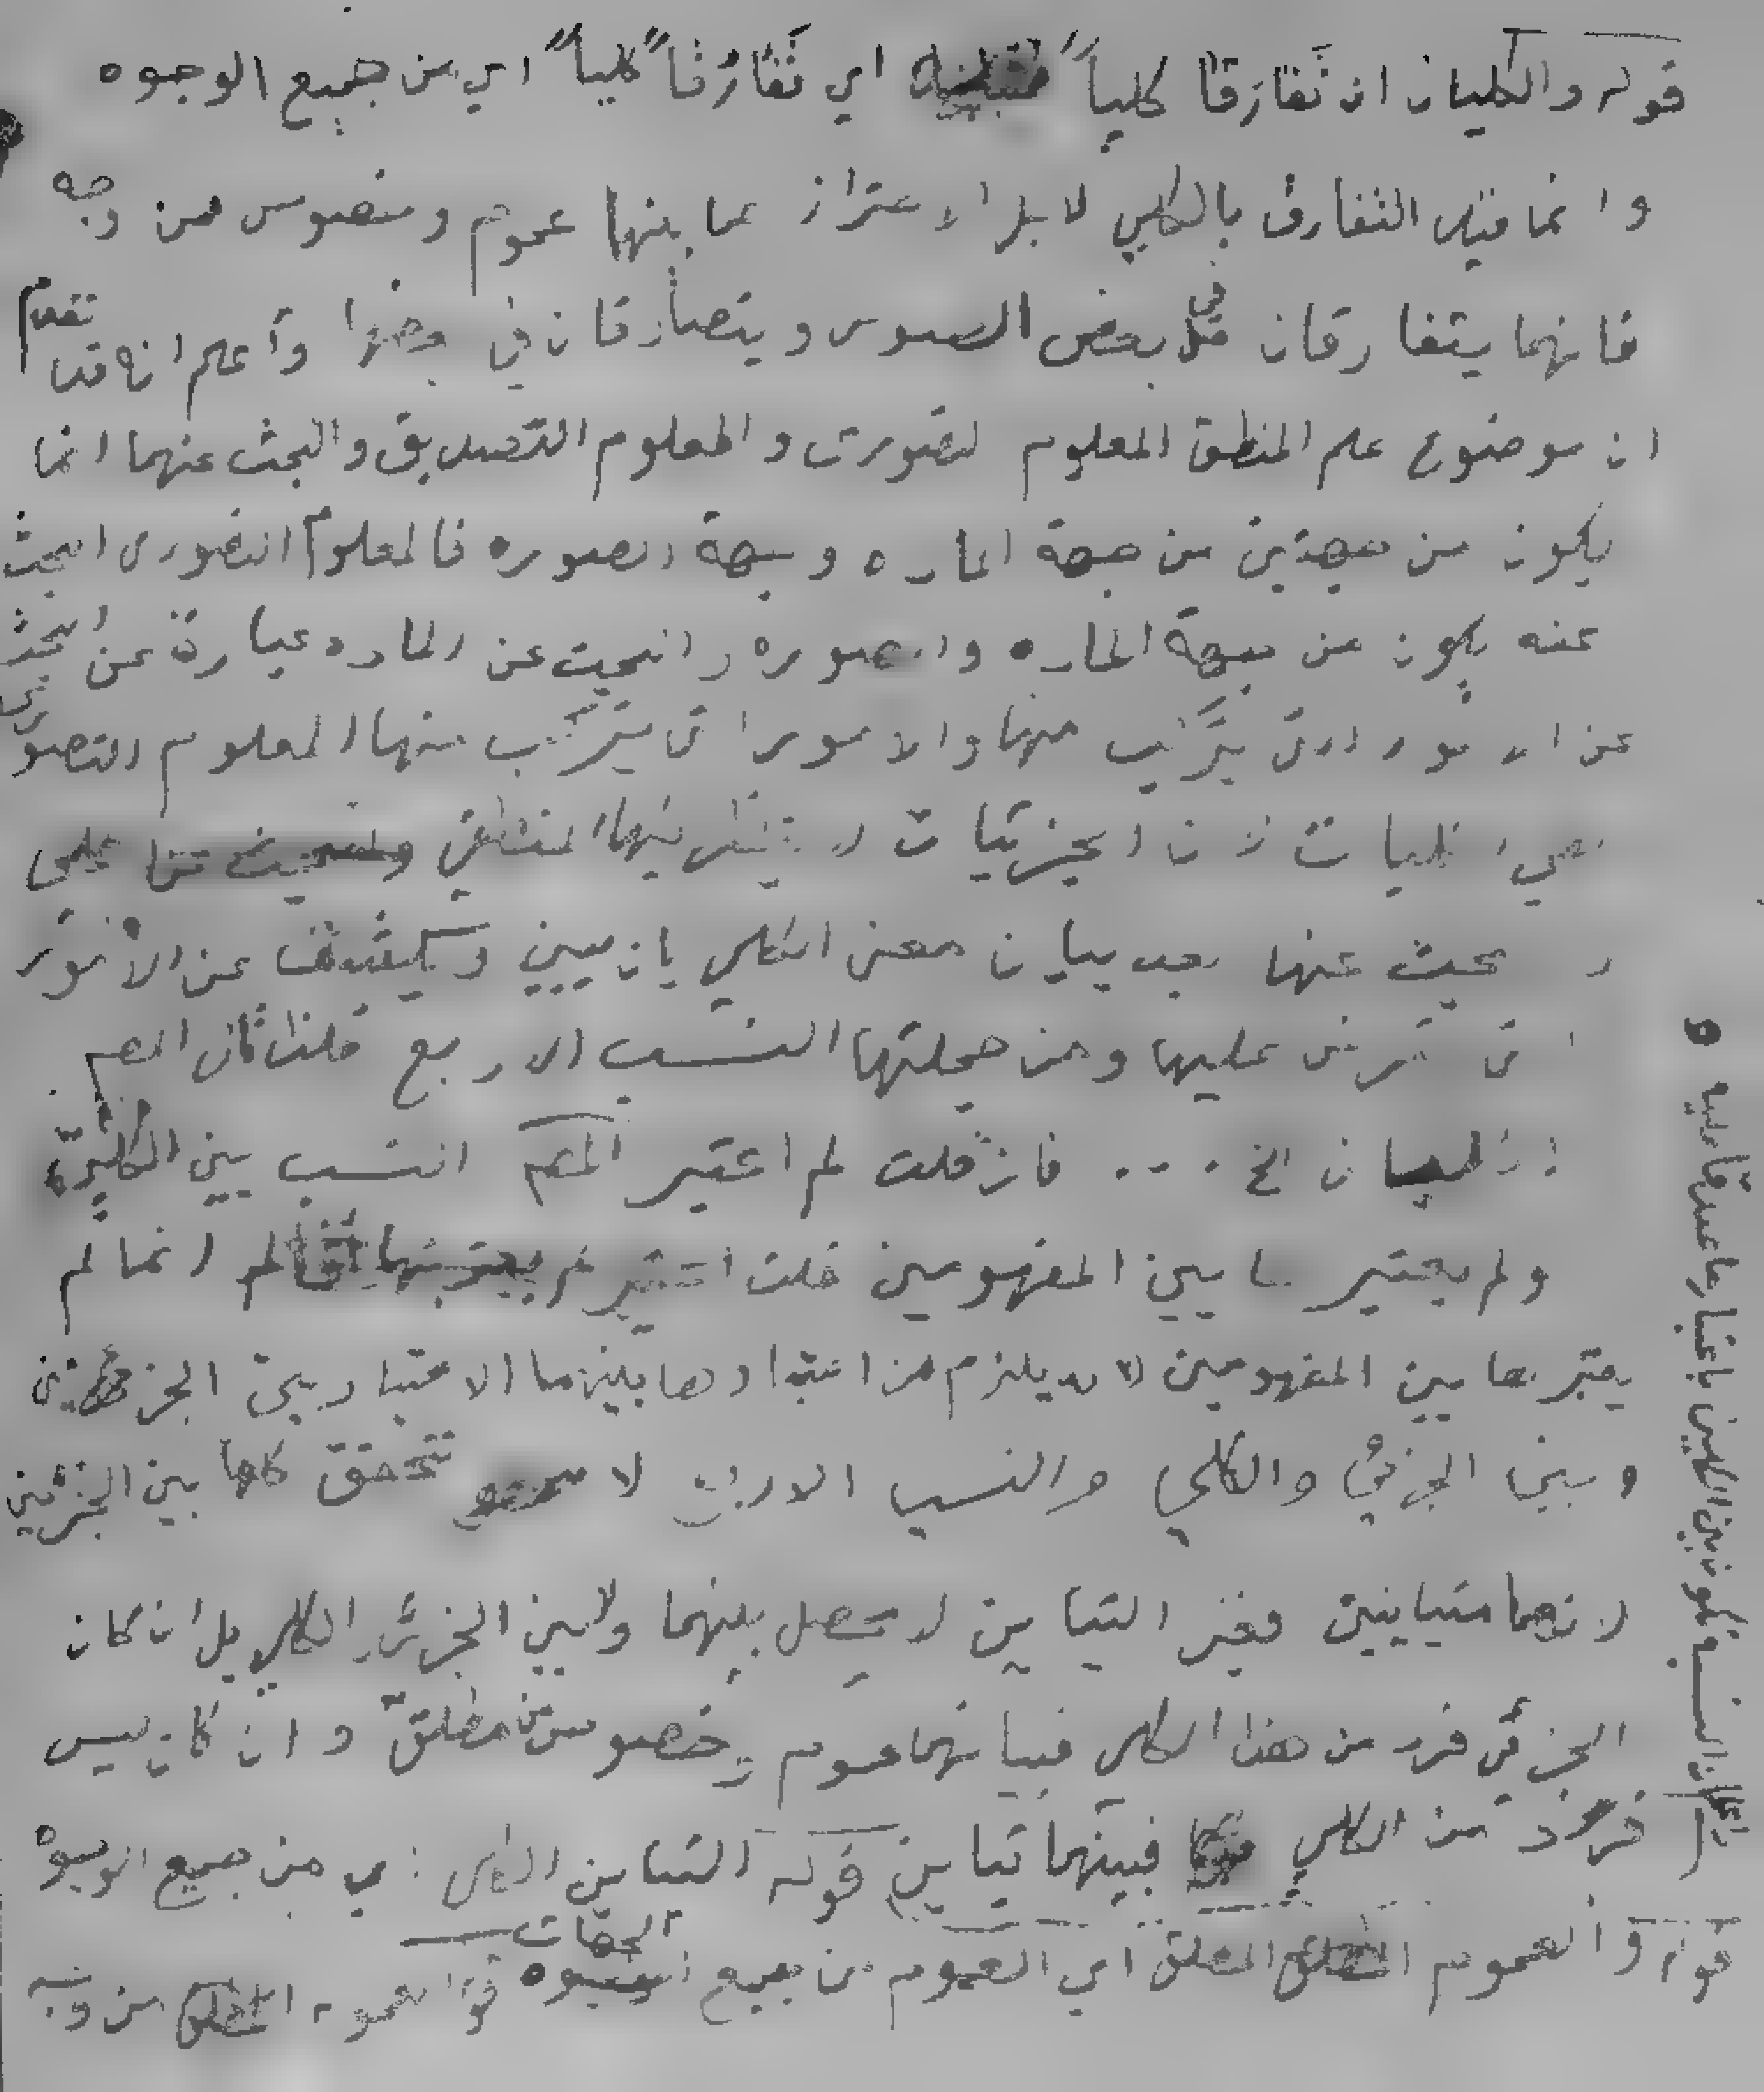 قوله والكليان ان تفارقا كلياً اي تَفَارُقاً كلياً اي من جميع الوجوه
وانما قيد التفارق بالكلي لاجل الاحتراز عما بينهما عموم وخصوص من وجه
فانهما يتفارقان في بعض الصور ويتصادقان في بعضها وأعلم انه قد تقدم
ان موضوع علم المنطق المعلوم التصوري والمعلوم التصديق والبحث عنهما انما
يكون من جهتين من جهة الماده وجهة الصوره فالمعلوم التصوري البحث
عنه يكون من جهة الماده والصوره والبحث عن الماده عبارة عن البحث
عن الامور التى يتركب منها والامور التى يتركب منها المعلوم التصورى
هي الكليات لان الجزئيات لا ينظر فيها المنطقي
و يبحث عنها بعد بيان معنى الكلي بان يبين ويكشف عن الأمور
التى تعرض عليها ومن جملتها النسب الاربع فلذا قال المص
الكليان الخ .... فان قلت لم اعتبر المص النسب بين الكليين
ولم يعتبر ها بين المفهومين قلت انما لم
يعتبرها بين المفهومين لانه يلزم من اعتبارها بينهما الاعتبار بين الجزئيين
وبين الجزئي والكلي والنسب الاربع لا تتحقق كلها بين الجزئيين
لانهما متباينين فغير التباين لا يحصل بينهما ولا بين الجزئي والكلي بل ان كان
الجزئي فرد من هذا الكلي فبينهما عموم وخصوص مطلق وان كان ليس
فرد من الكلي فبينهما تباين قوله التباين الكلي اي من جميع الوجوه
قوله والعموم المطلق اي العموم من جميع الجهات قوله العموم من وجه
واعلم ان النسبة تكون بين الكليين باعتبار ما صدقا عليه